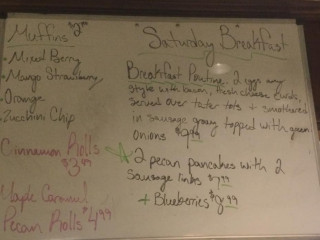 Muffins $2.99
• Mixed Berry
• Mango Strawberry
• Orange
• Zucchini Chip
Cinnamon Rolls
$3.99
Maple Caramel
Pecan Rolls $4.99
"Saturday Breakfast"
Breakfast Poutine - 2 eggs any
style with bacon, fresh cheese curds,
served over tater tots + smothered
in sausage gravy topped with green
onions $9.99
2 pecan pancakes with 2
sausage links $7.99
+ Blueberries $8.99